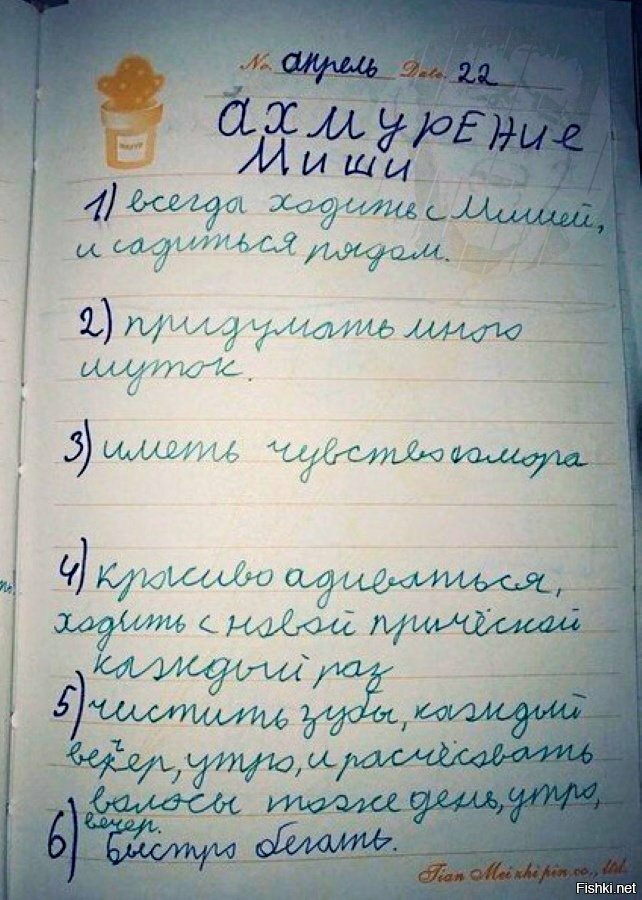 No. апрель Date. 22
ахмурЕНиЕ
Миши
1) всегда ходить с Мишей,
и садиться рядом.
2) придумать много
шуток.
3) иметь чувство юмора
4) красиво адиваться,
ходить с новой причёской
каждый раз
5) чистить зубы, каждый
вечер, утро, и расчёсовать
волосы тоже день, утро,
вечер.
6) Быстро бегать.
Tian Mei zhi pin co., ltd.
Fishki.net